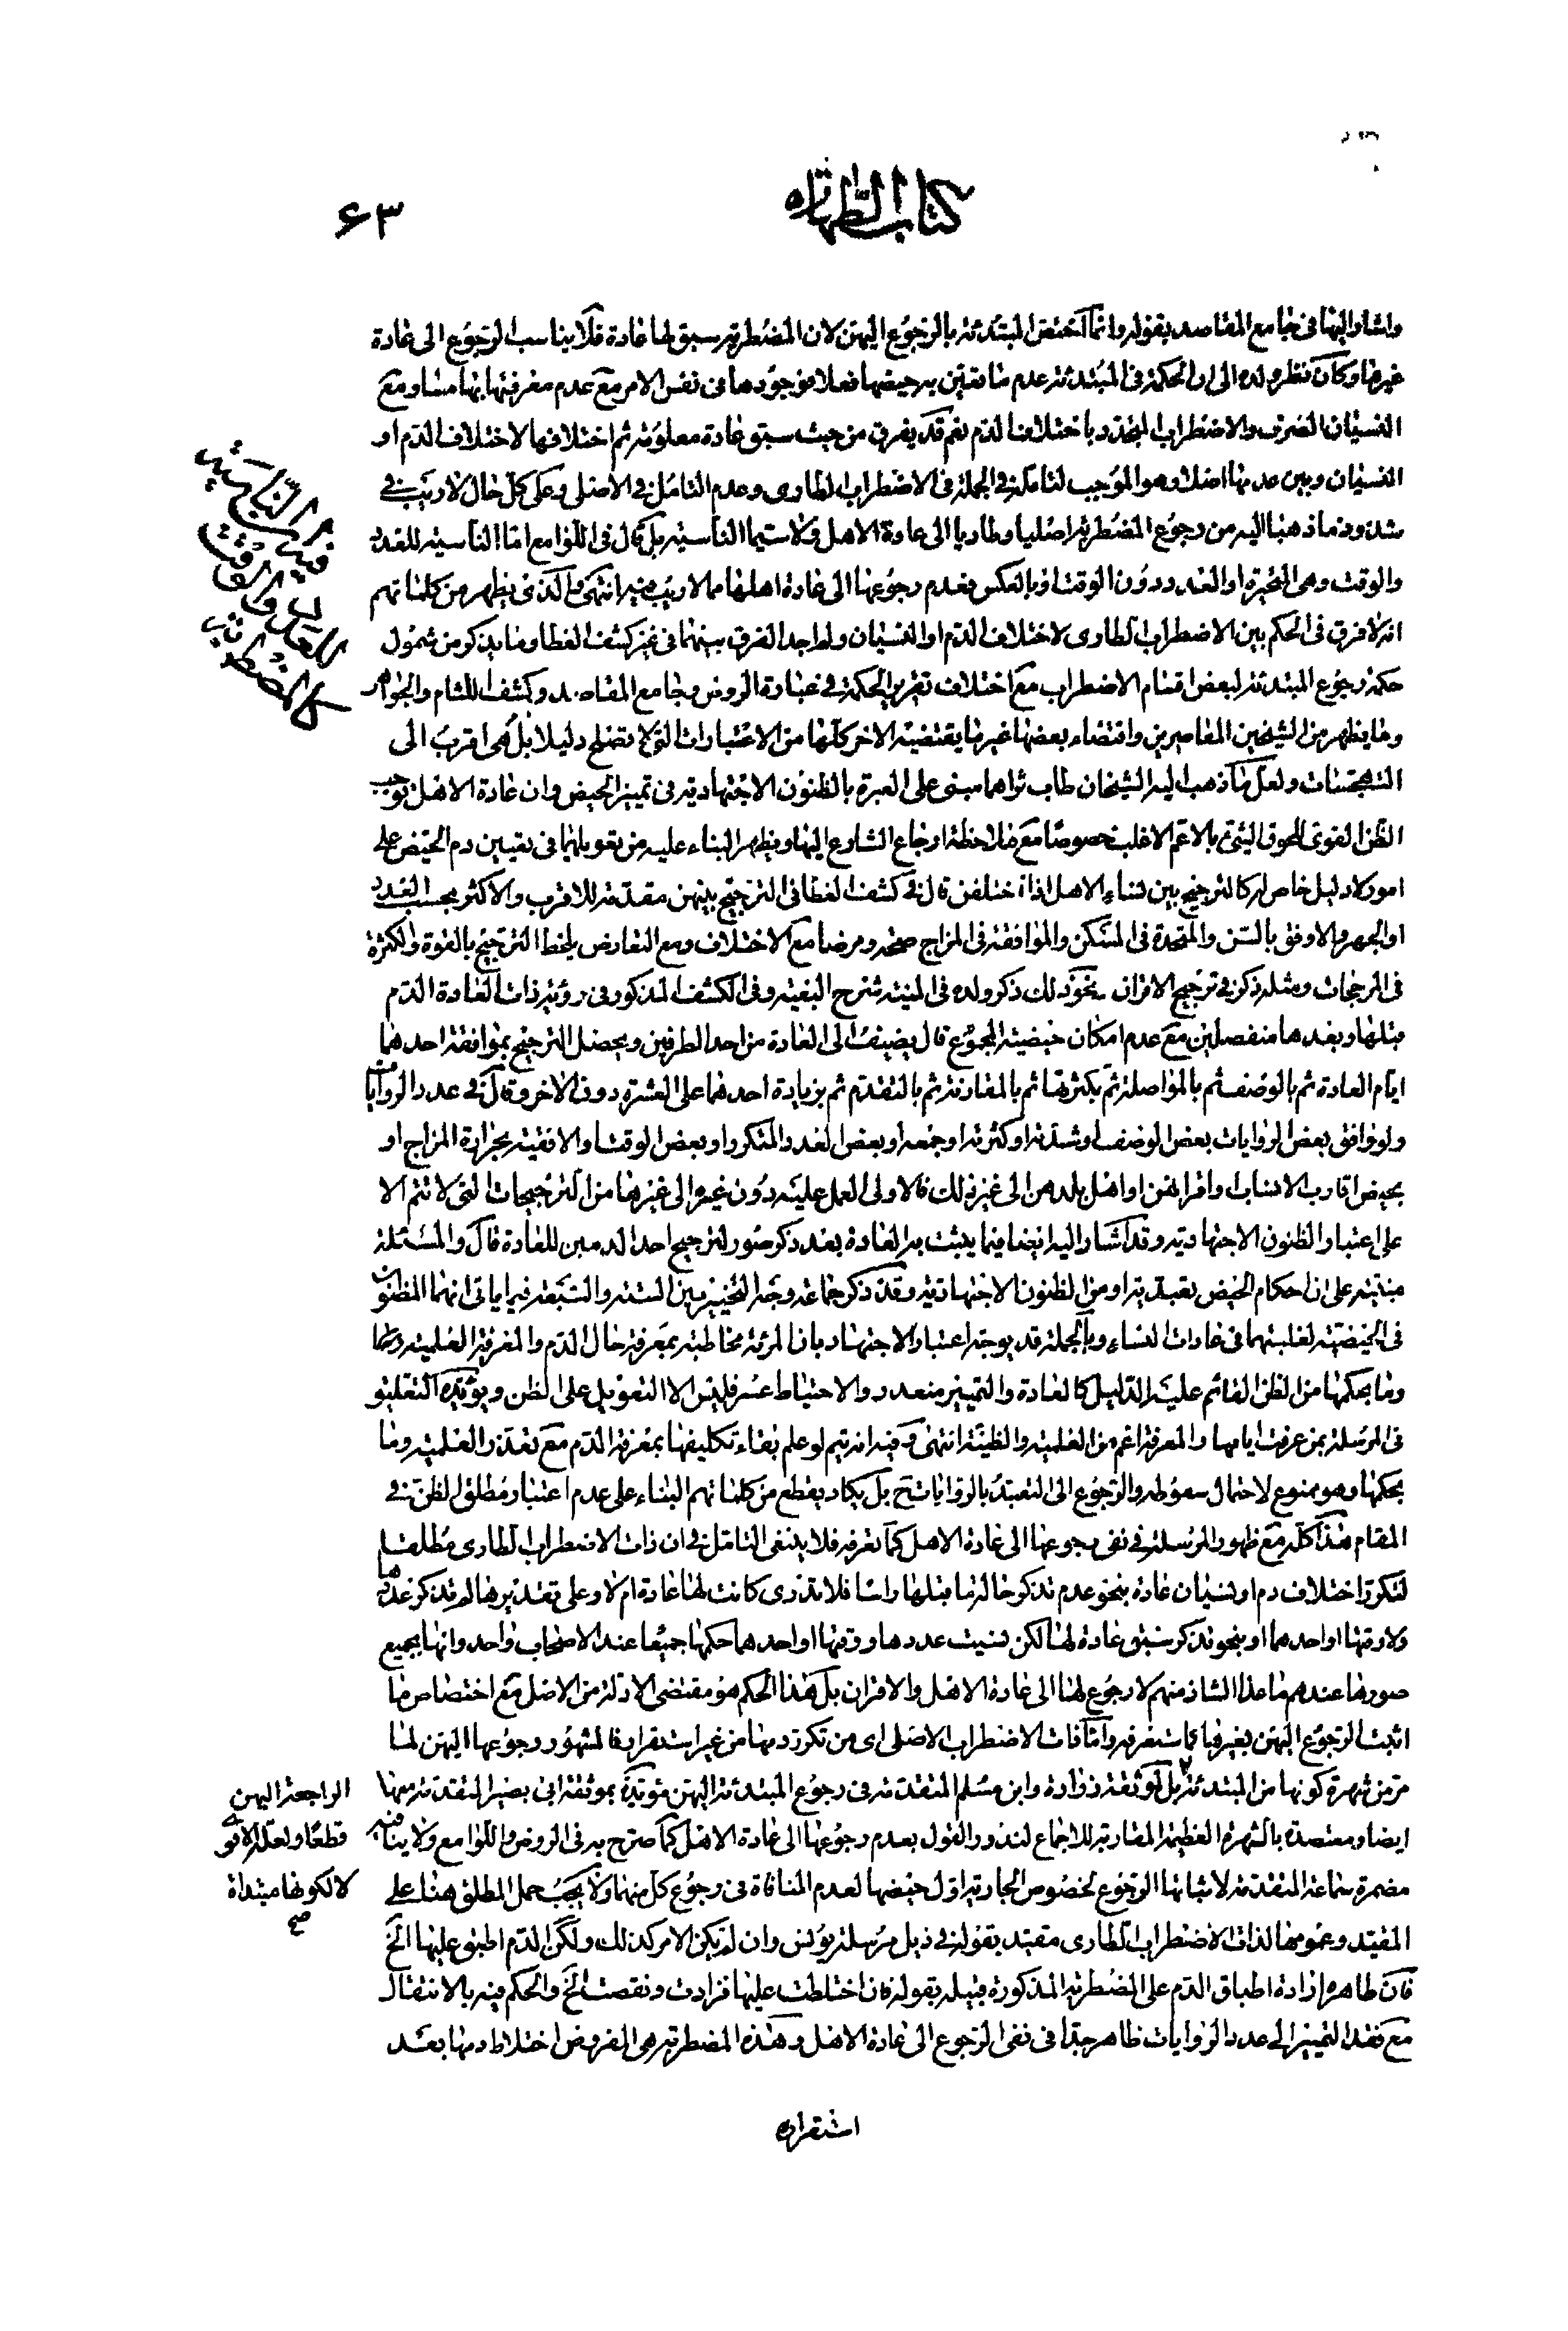 كتاب الطهارة
۶۳
واشار اليها في جامع المقاصد بقوله وانما اختص المبتدئة بالرجوع اليهن لان المضطربة سبق لها عادة فلا يناسب الرجوع الى عادة
غيرها وكان نظره لده الى ان الحكمة في المبتدئة عدم ما يتبين به حيضها فعلا فوجودها في نفس الامر مع عدم معرفتها بها مساو مع
النسيان الصرف والاضطراب المجدد باختلاف الدم نعم قد يفرق من حيث سبق عادة معلومة ثم اختلافها لاختلاف الدم او
النسيان وبين عدمها اصلا وهو الموجب لتامله في الجملة في الاضطراب الطاري وعدم التامل في الاصلي وعلى كل حال لا ريب في
شذوذ ما ذهبا اليه من رجوع المضطربة اصليا وطاريا الى عادة الاهل ولا سيما الناسية بل قال في اللوامع اما الناسية للعدد
والوقت وهي المتحيرة او العدد دون الوقت او بالعكس فعدم رجوعها الى عادة اهلها مما لا ريب فيه انتهى والذي يظهر من كلماتهم
انه لا فرق في الحكم بين الاضطراب الطاري لاختلاف الدم او النسيان ولم اجد الفرق بينهما في غير كشف الغطا وما يذكر من شمول
حكمة رجوع المبتدئة لبعض اقسام الاضطراب مع اختلاف تقرير الحكمة في عبارة الروض وجامع المقاصد وكشف اللثام والجواهر
وما يظهر من الشيخين المعاصرين واقتضاء بعضها غير ما يقتضيه الاخر كلها من الاعتبارات التي لا تصلح دليلا بل هي اقرب الى
التهجسات ولعل ما ذهب اليه الشيخان طاب ثراهما مبني على العبرة بالظنون الاجتهادية في تميز الحيض وان عادة الاهل توجب
الظن القوي للحوق الشيء بالاعم الاغلب خصوصا مع ملاحظة ارجاع الشارع اليها ويظهر البناء عليه من تعويلهما في تعيين دم الحيض على
امور لا دليل خاص له كالترجيح بين نساء الاهل اذا اختلفن قال في كشف الغطا في الترجيح بينهن مقدمة للاقرب والاكثر بحسب العدد
او الجهر والاوفق بالسن والمتحدة في المسكن والموافقة في المزاج صحة ومرضا مع الاختلاف ومع التعارض يلحظ الترجيح بالقوة والكثرة
في المرجحات ومثله ذكر في ترجيح الاقران ونحو ذلك ذكر ولده في المنية شرح البغية وفي الكشف المذكور في رؤية ذات العادة الدم
قبلها وبعدها منفصلين مع عدم امكان حيضية المجموع قال يضيف الى العادة من احد الطرفين ويحصل الترجيح بموافقة احدهما
ايام العادة ثم بالوصف ثم بالمواصلة ثم بكثرتها ثم بالمقارنة ثم بالتقدم ثم بزيادة احدهما على العشرة دون الاخر وقال في عدد الروايات
ولو وافق بعض الروايات بعض الوصف او شدته او كثرته او جمعه او بعض العدد المتكرر او بعض الوقت او الافقية بحرارة المزاج او
بحيض اقارب الانساب واقرانهن او اهل بلدهن الى غير ذلك فالاولى العمل عليه دون غيره الى غيرها من الترجيحات التي لا تتم الا
على اعتبار الظنون الاجتهادية وقد اشار اليه ايضا فيما يثبت به العادة بعد ذكر صور لترجيح احد الدمين للعادة قال والمسئلة
مبنية على ان احكام الحيض تعبدية او من الظنون الاجتهادية وقد ذكر جماعة وجه التخيير بين الستة والسبعة فيما ياتي انهما المظنون
في الحيضية لغلبتهما في عادات النساء وبالجملة قد يوجه اعتبار الاجتهاد بان المرئة مخاطبة بمعرفة حال الدم والمعرفة العلمية
وما بحكمها من الظن القائم عليه الدليل كالعادة والتمييز متعذر والاحتياط عسر فليس الا التعويل على الظن ويؤيده التعليق
في المرسلة بمن عرفت ايامها والمعرفة اعم من العلمية والظنية انتهى وفيه انه يتم لو علم بقاء تكليفها بمعرفة الدم مع تعذر العلمية وما
بحكمها وهو ممنوع لاحتمال سقوطه والرجوع الى التعبد بالروايات ح بل يكاد يقطع من كلماتهم البناء على عدم اعتبار مطلق الظن في
المقام هذا كله مع ظهور المرسلة في نفي رجوعها الى عادة الاهل كما تعرفه فلا ينبغي التامل في ان ذات الاضطراب الطاري مطلقا
لتكرر اختلاف دم او نسيان عادة بنحو عدم تذكر حالة ما قبلها راسا فلا تدري كانت لها عادة ام لا وعلى تقديرها لم تذكر عددها
ولا وقتها او احدهما او بنحو تذكر سبق عادة لها لكن نسيت عددها ووقتها او احدهما حكمها جميعا عند الاصحاب واحد وانها بجميع
صورها عندهم ما عدا الشاذ منهم لا رجوع لها الى عادة الاهل والاقران بل هذا الحكم هو مقتضى الادلة من الاصل مع اختصاص ما
اثبت الرجوع اليهن بغيرها كما ستعرفه واما ذات الاضطراب الاصلي اي من تكرر دمها من غير استقرار فالمشهور رجوعها اليهن لما
مر من شهرة كونها من المبتدئة بل كموثقة زرارة وابن مسلم المتقدمة في رجوع المبتدئة اليهن مؤيدة بموثقة ابي بصير المتقدمة منها
ايضا ومعتضدة بالشهرة العظيمة المقاربة للاجماع لندور القول بعدم رجوعها الى عادة الاهل كما صرح به في الروض واللوامع ولا ينافيه
مضمرة سماعة المتقدمة لاثباتها الرجوع لخصوص الجارية اول حيضها لعدم المنافاة في رجوع كل منهما ولا يجب حمل المطلق هنا على
المقيد وعمومها لذات الاضطراب الطاري مقيد بقوله في ذيل مرسلة يونس وان لم يكن الامر كذلك ولكن الدم اطبق عليها الخ
فان ظاهره ارادة اطباق الدم على المضطربة المذكورة قبيله بقوله فان اختلطت عليها فزادت ونقصت الخ والحكم فيه بالانتقال
مع فقد التمييز الى عدد الروايات ظاهر جدا في نفي الرجوع الى عادة الاهل وهذه المضطربة هي المفروض اختلاط دمها بعد
الراجعة اليهن
قطعا ولعله الاقوى
لا لكونها مبتداة
صح
استقراره